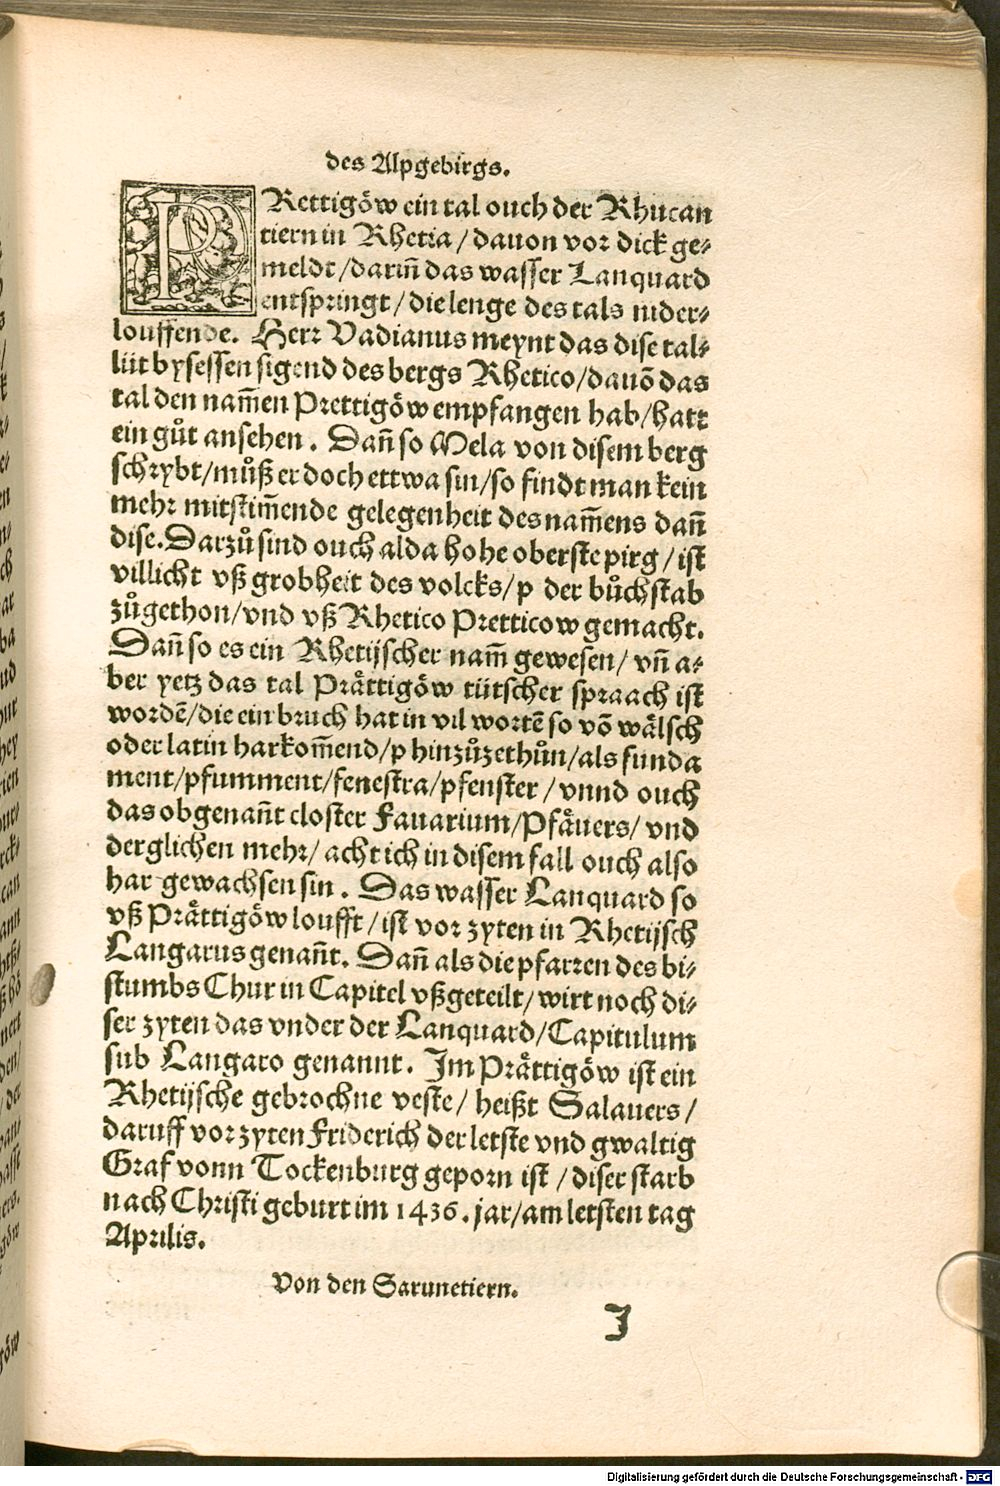 des Alpgebirgs.
PRettigöw ein tal ouch der Rhucan
tiern in Rhetia / dauon vor dick ge⸗
meldt / dariñ das wasser Lanquard
entspringt / die lenge des tals nider⸗
louffende. Herr Vadianus meynt das dise tal⸗
lüt bysessen sigend des bergs Rhetico / dauõ das
tal den nam̃en Prettigöw empfangen hab / hatt
ein gůt ansehen. Dañ so Mela von disem berg
schrybt / můß er doch ettwa sin / so findt man kein
mehr mitstim̃ende gelegenheit des nam̃ens dañ
dise. Darzů sind ouch alda hohe oberste pirg / ist
villicht vß grobheit des volcks / p der bůchstab
zůgethon / vnd vß Rhetico Pretticow gemacht.
Dañ so es ein Rhetijscher nam̃ gewesen / vñ a⸗
ber yetz das tal Prättigöw tütscher spraach ist
wordẽ / die ein bruch hat in vil wortẽ so võ wälsch
oder latin harkom̃end / p hinzůzethůn / als funda
ment / pfumment / fenestra / pfenster / vnnd ouch
das obgenañt closter Fauarium / Pfäuers / vnd
derglichen mehr / acht ich in disem fall ouch also
har gewachsen sin. Das wasser Lanquard so
vß Prättigöw loufft / ist vor zyten in Rhetijsch
Langarus genañt. Dañ als die pfarren des bi⸗
stumbs Chur in Capitel vßgeteilt / wirt noch di⸗
ser zyten das vnder der Lanquard / Capitulum
sub Langaro genannt. Im Prättigöw ist ein
Rhetijsche gebrochne veste / heißt Salauers /
daruff vor zyten Friderich der letste vnd gwaltig
Graf vonn Tockenburg geporn ist / diser starb
nach Christi geburt im 1436. jar / am letsten tag
Aprilis.
Von den Sarunetiern.
J
Digitalisierung gefördert durch die Deutsche Forschungsgemeinschaft - DFG